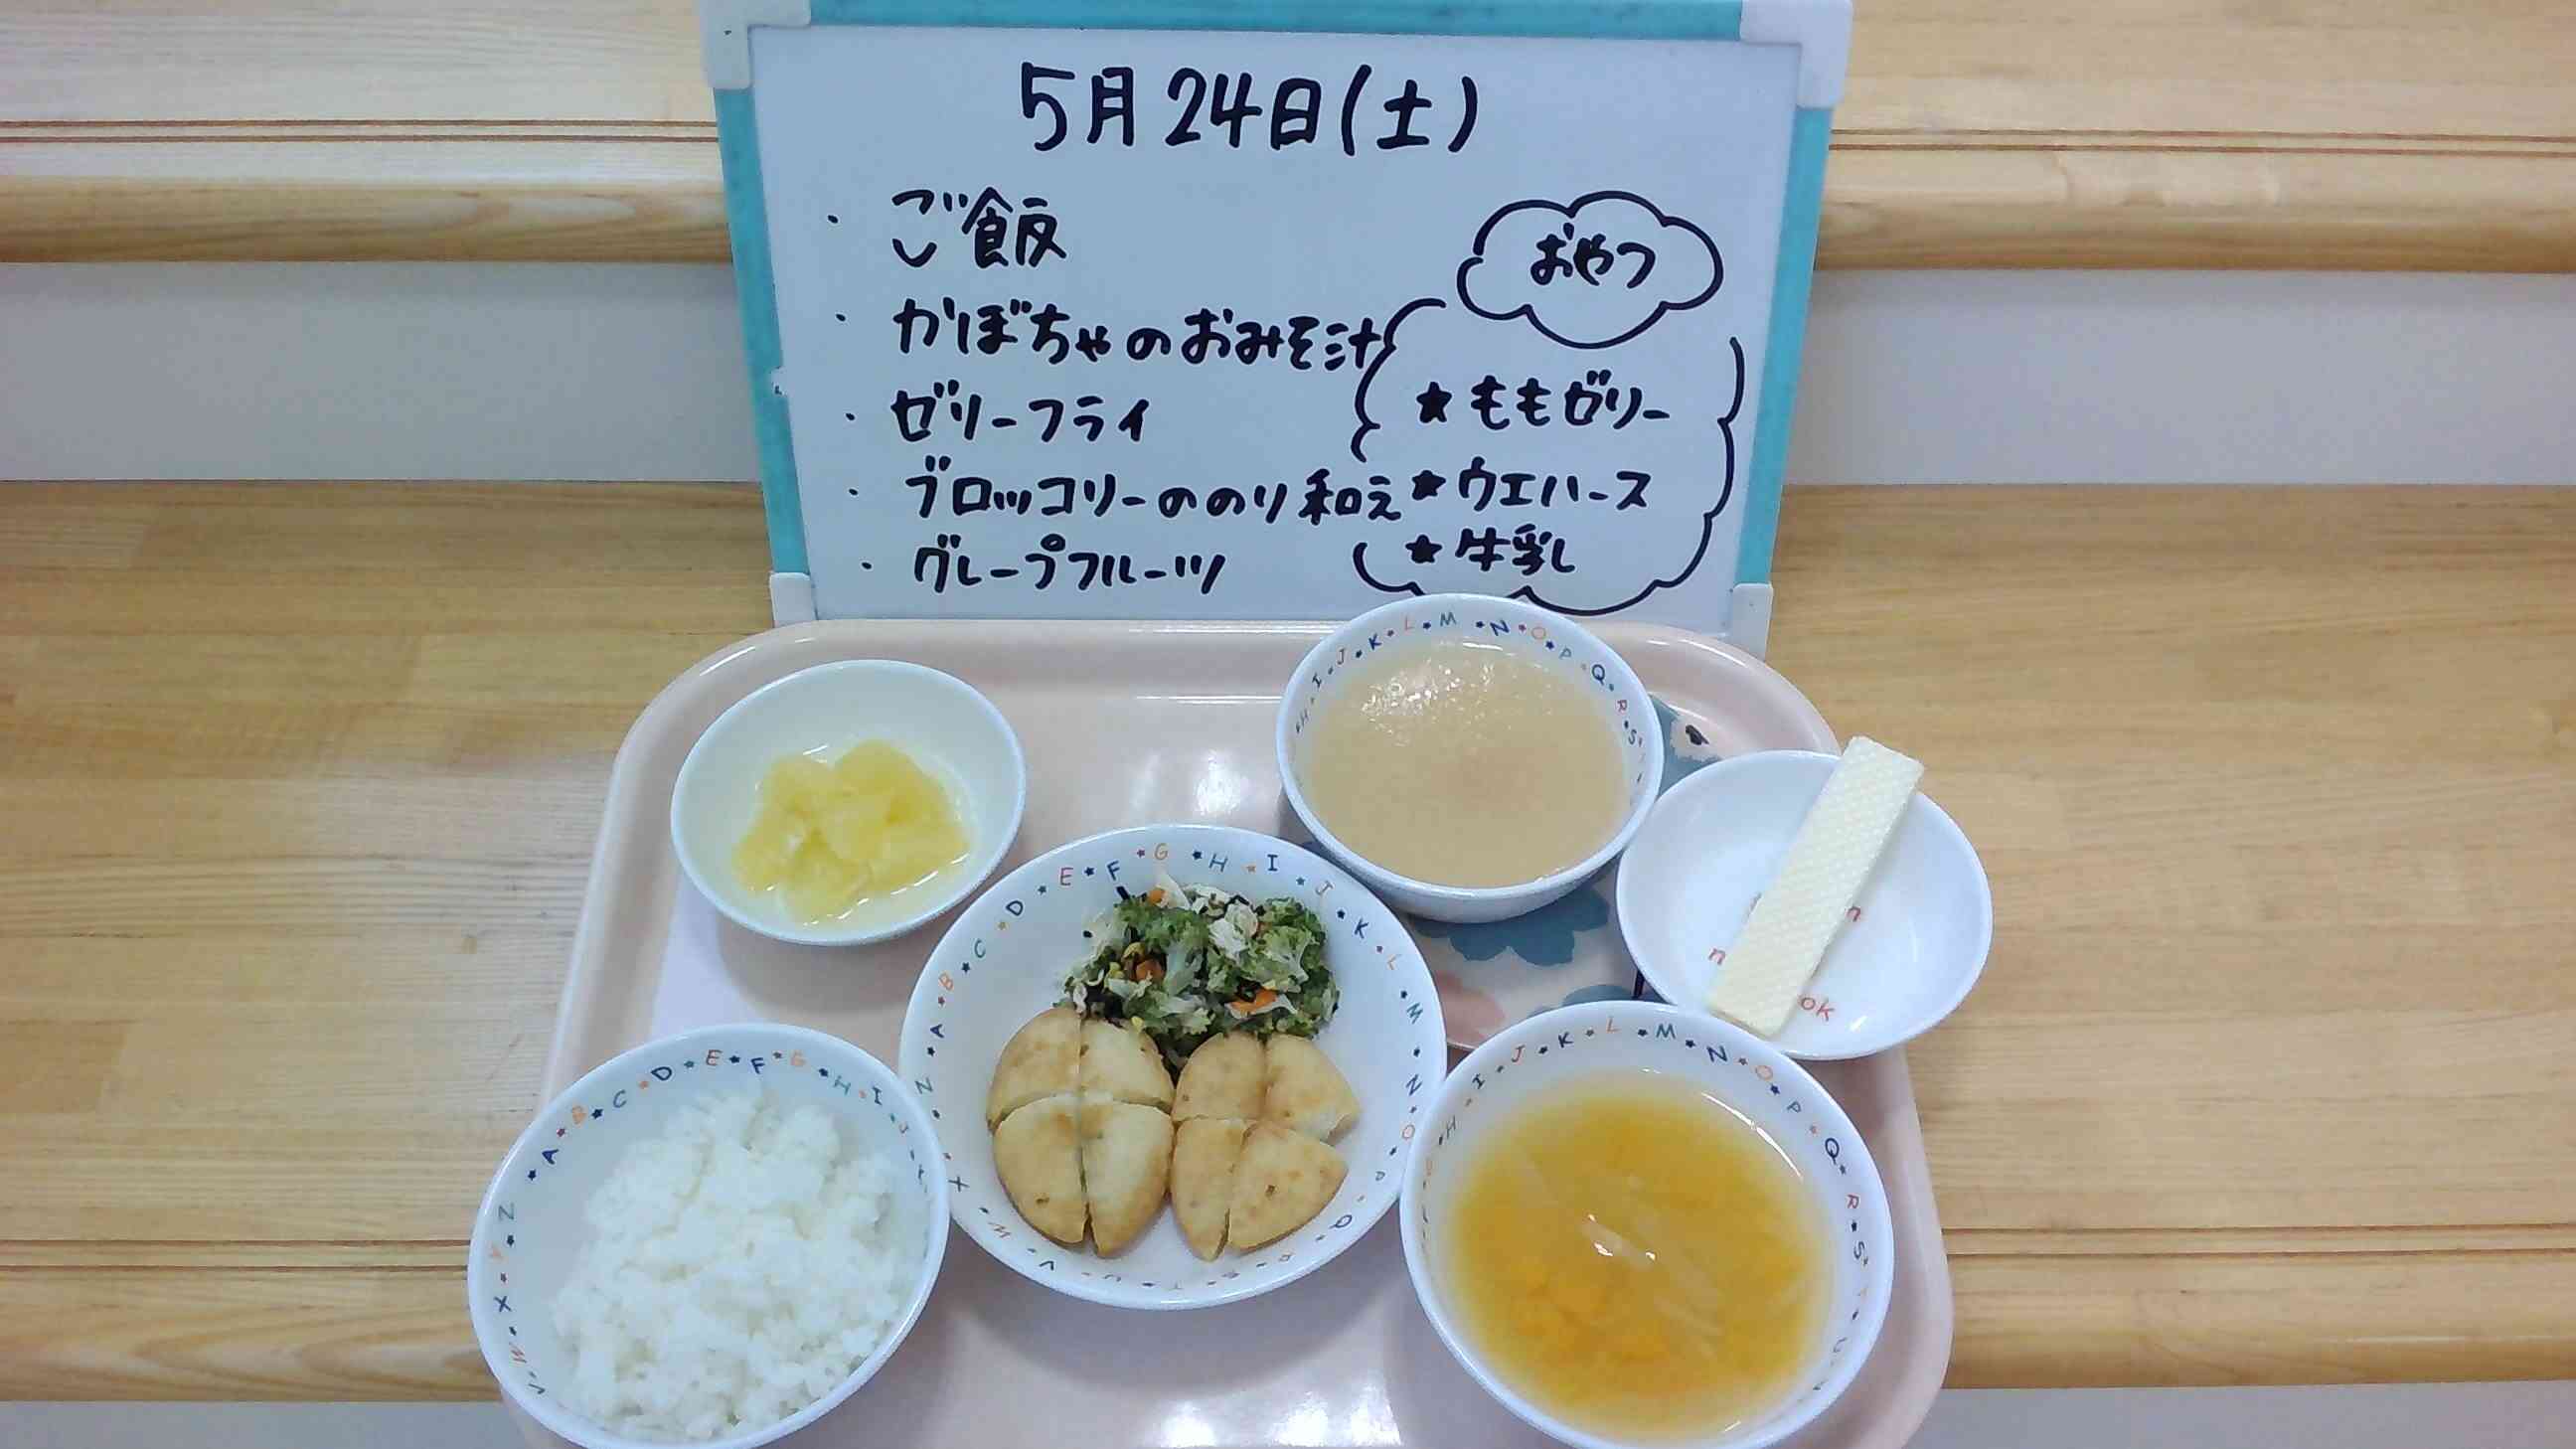 5月24日(土)
・ご飯
・かぼちゃのおみそ汁
・ゼリーフライ
・ブロッコリーののり和え
・グレープフルーツ
おやつ
★ももゼリー
★ウエハース
★牛乳
H I J K L M N O P Q R S
A B C D E F G H I J K L M N O P Q R S T U V W X Z
A B C D E F G H I J
V W X Y Z
H I J K L M N O P Q R S T U